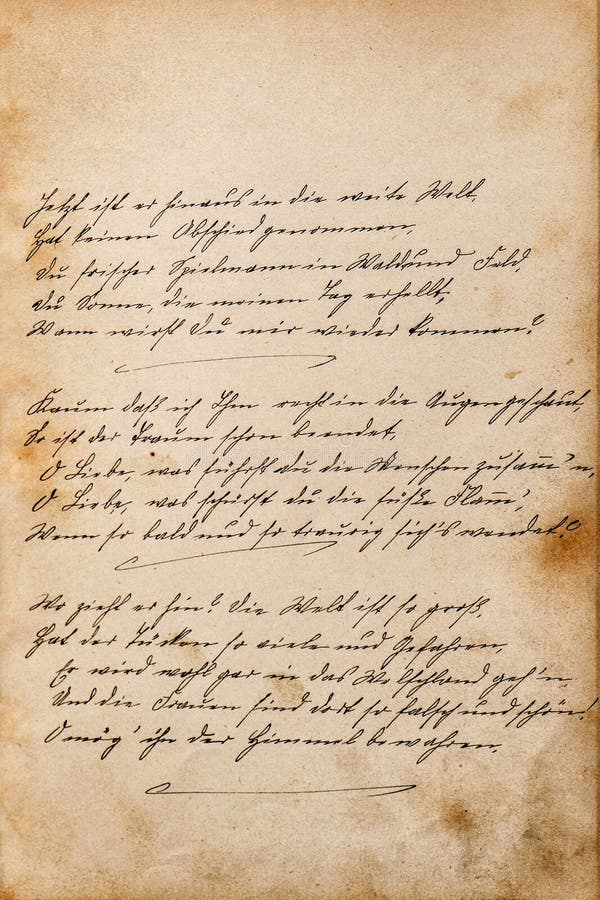 Jetzt ist er hinaus in die weite Welt,
Hat keinen Abschied genommen,
Du frischer Spielmann in Wald und Feld,
Du Sonne, die meinen Tag erhellt,
Wann wirst Du mir wieder kommen?
Kaum daß ich Ihm recht in die Augen geschaut,
So ist der Traum schon beendet,
O Liebe, was führst du die Menschen zusamm'n,
O Liebe, was schürst du die süße Flamm',
Wenn so bald und so traurig sich's wendet?
Wo zieht er hin? die Welt ist so groß,
Hat der Tücken so viele und Gefahren,
Er wird wohl gar in das Welschland geh'n,
Und die Frauen sind dort so falsch und schön!
O mög' ihn der Himmel bewahren.